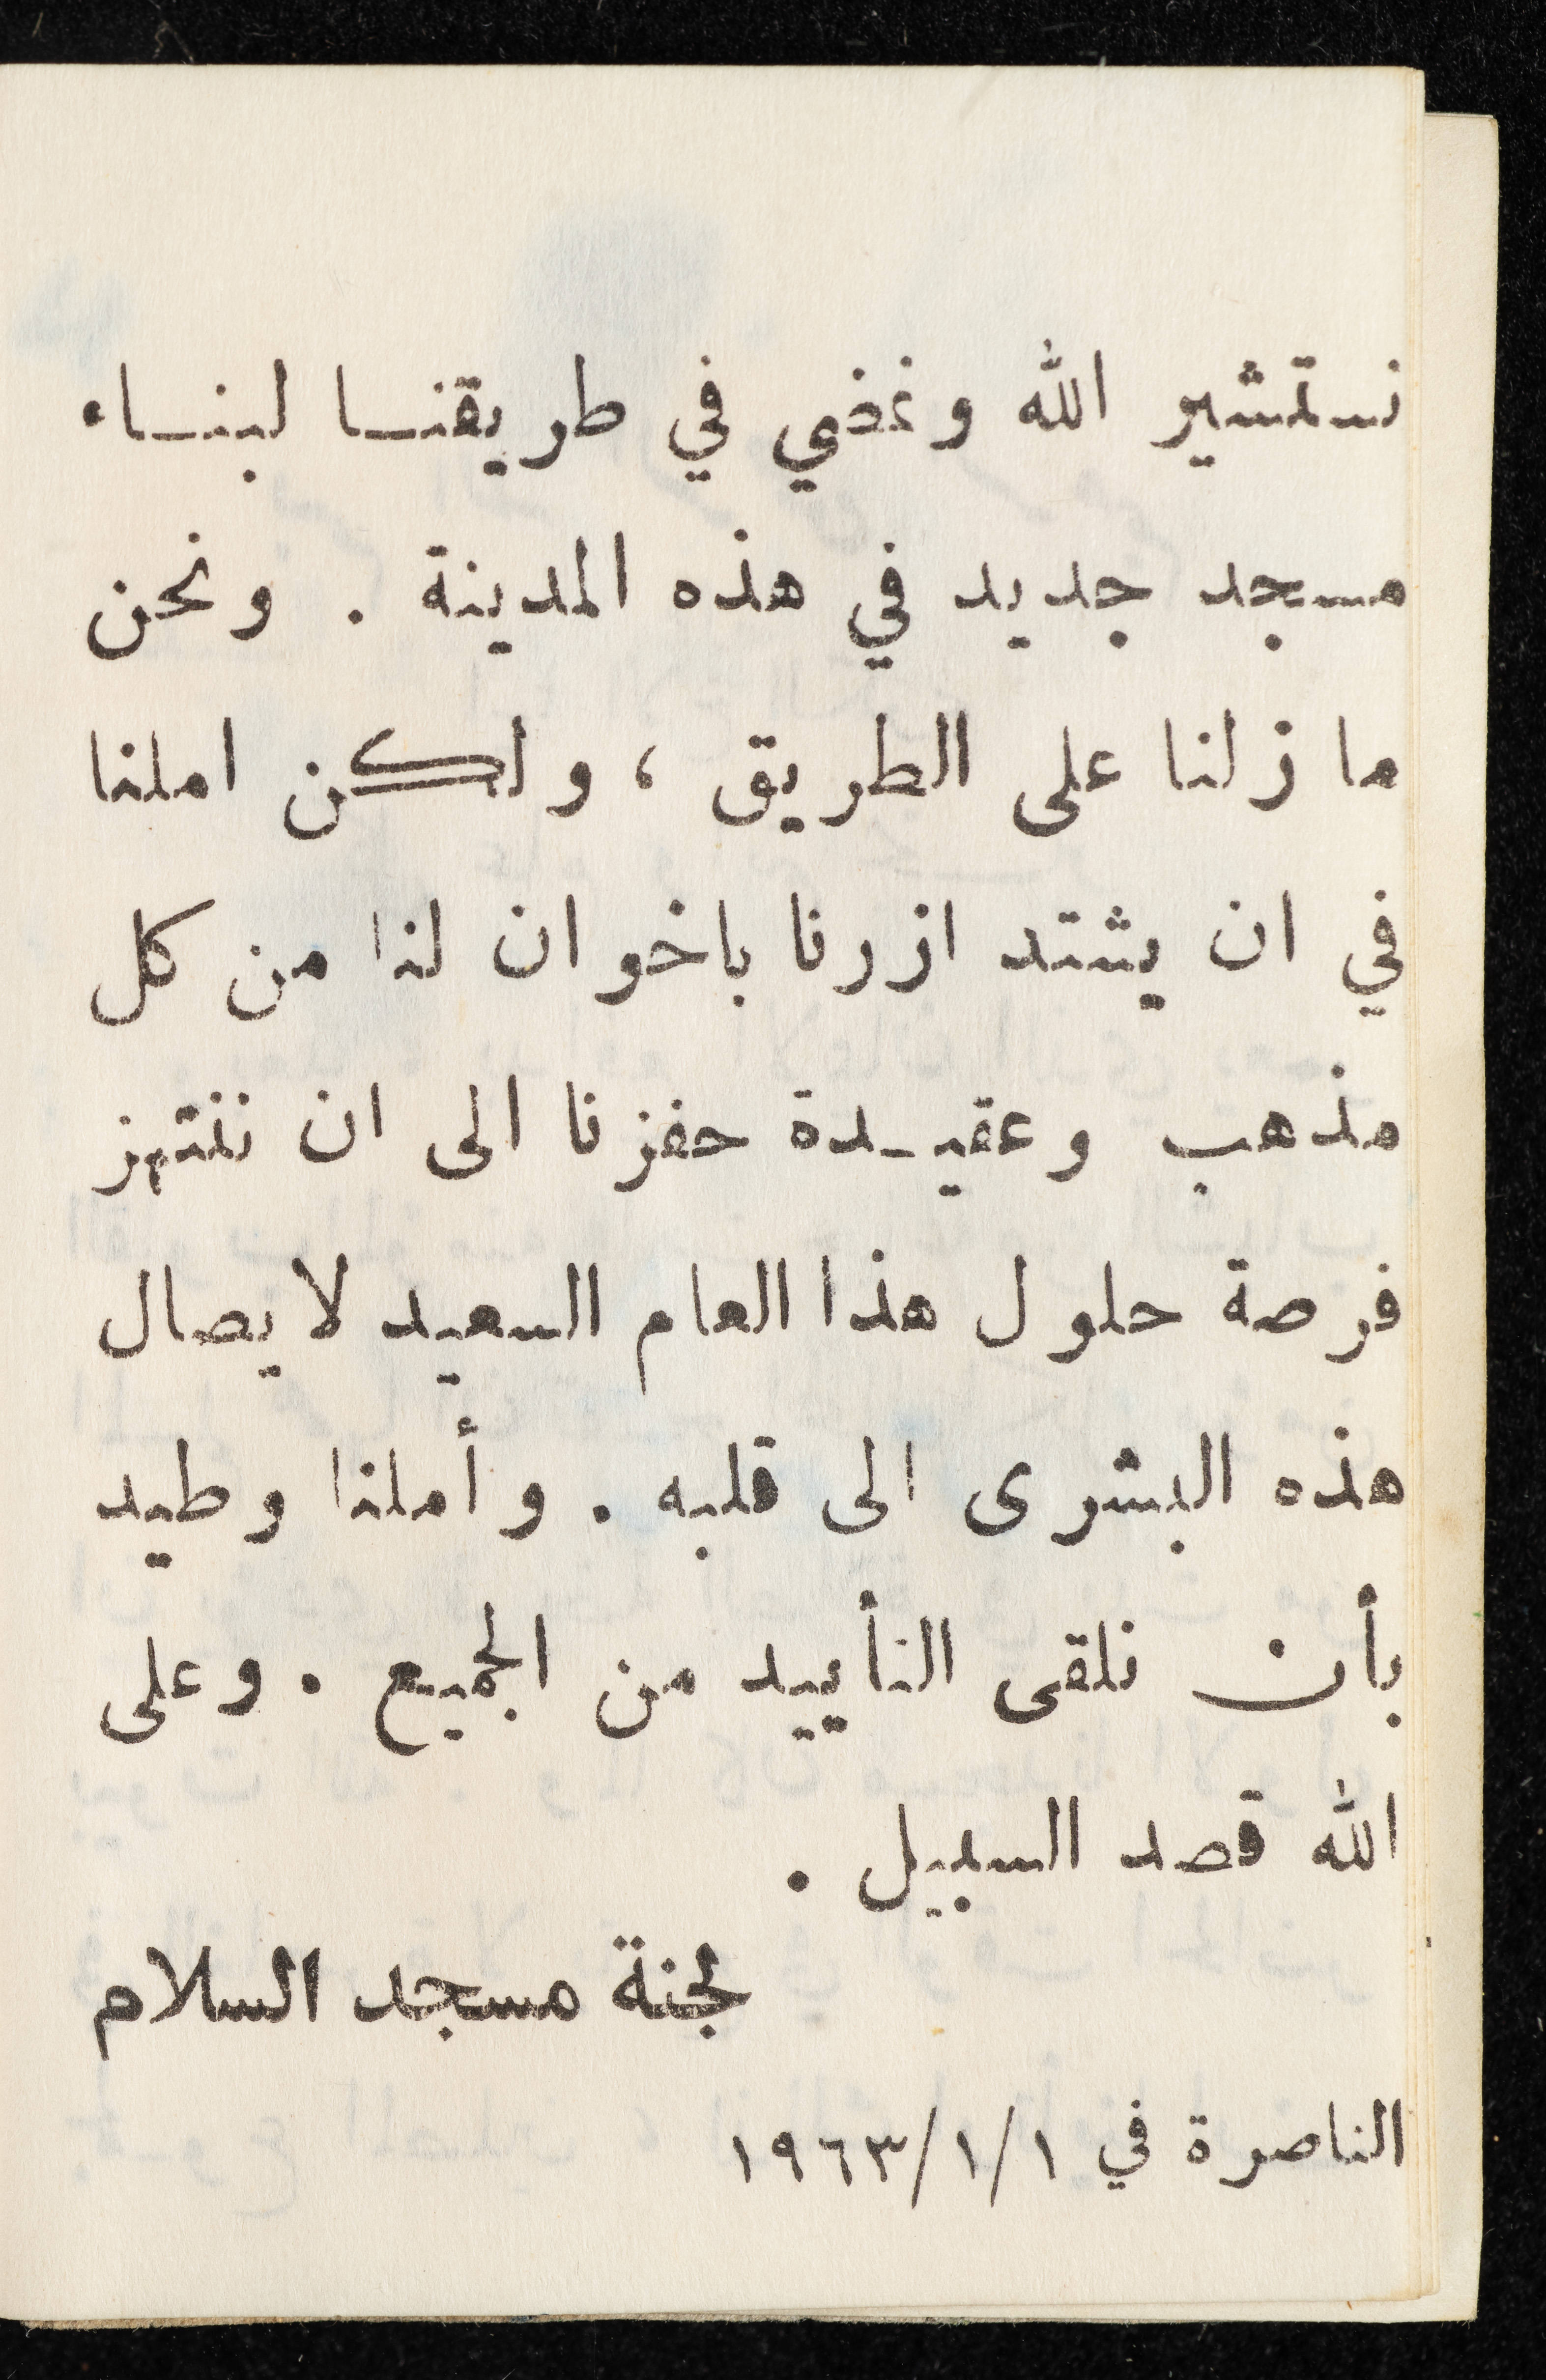 نستشير الله ونمضي في طريقنا لبناء
مسجد جديد في هذه المدينة . ونحن
ما زلنا على الطريق ، ولكن املنا
في ان يشتد ازرنا باخوان لنا من كل
مذهب وعقيدة حفزنا الى ان ننتهز
فرصة حلول هذا العام السعيد لايصال
هذه البشرى الى قلبه . وأملنا وطيد
بأن نلقى التأييد من الجميع . وعلى
الله قصد السبيل .
لجنة مسجد السلام
الناصرة في ١/١/١٩٦٣